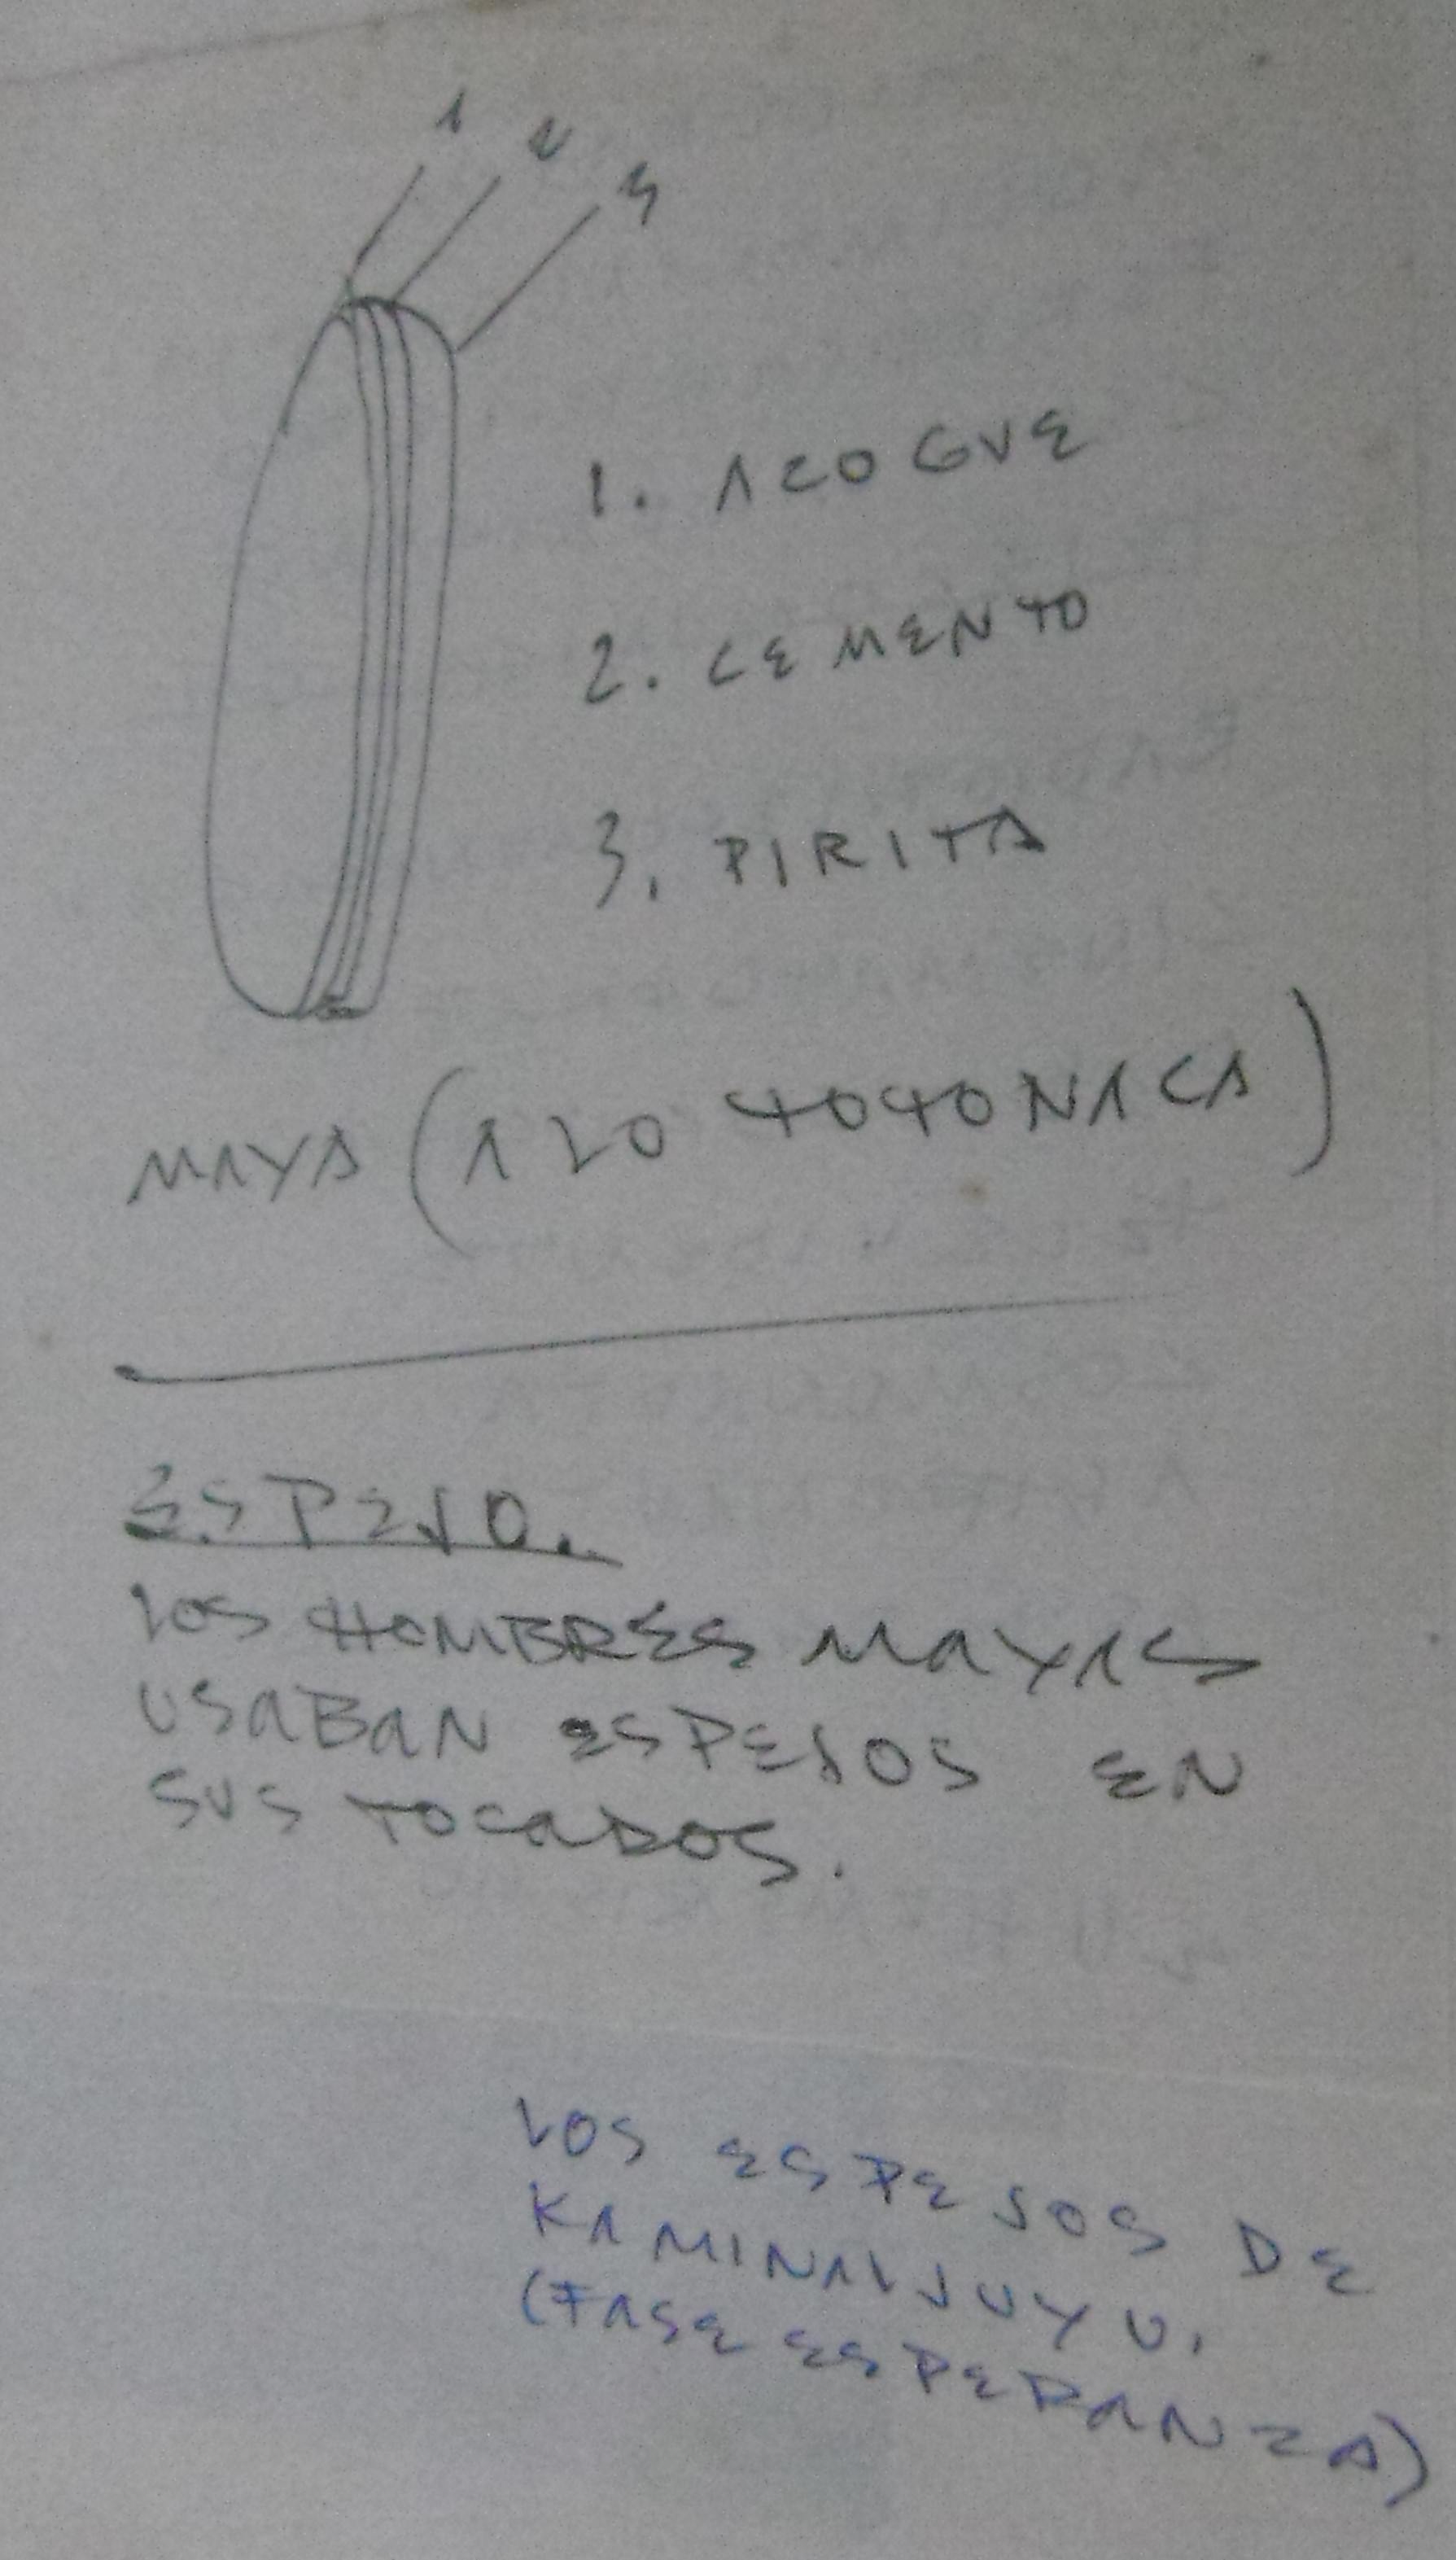 1 2 3
1. AZOGUE
2. CEMENTO
3. PIRITA
MAYA (ALO TOTONACA)
ESPEJO.
LOS HOMBRES MAYAS
USABAN ESPEJOS EN
SUS TOCADOS.
LOS ESPEJOS DE
KAMINALJUYU.
(FASE ESPERANZA)